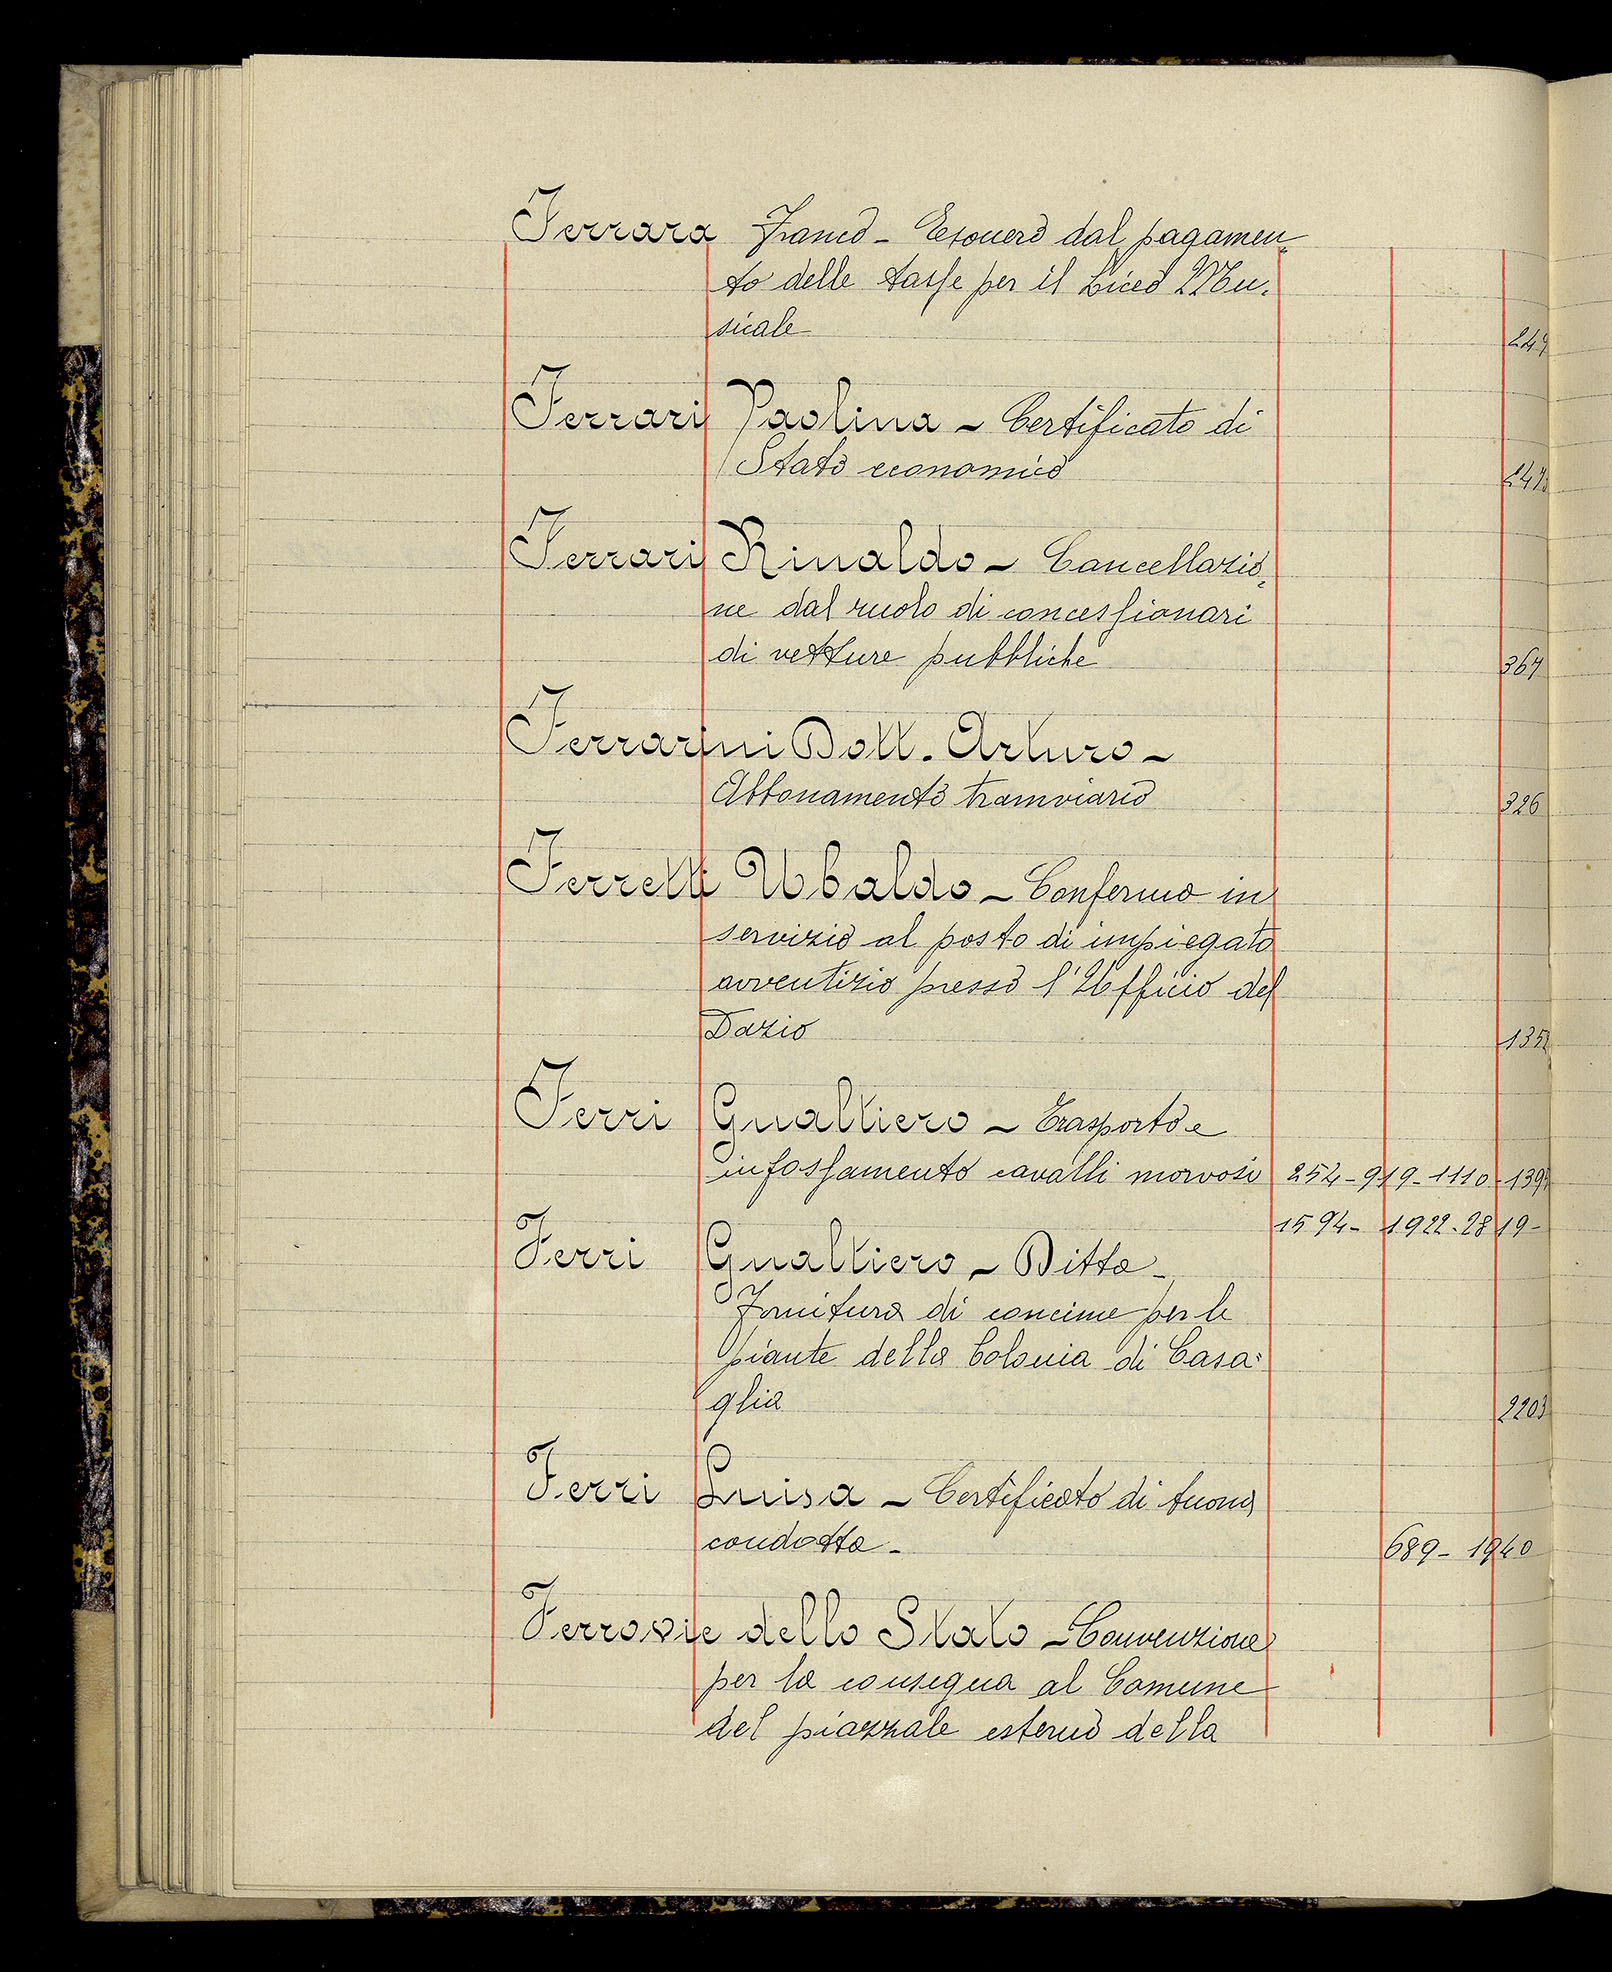 Ferrara Franco - Esonero dal pagamen-
to delle tasse per il Liceo Mu-
sicale
Ferrari Paolina - Certificato di
Stato economico
Ferrari Rinaldo - Cancellazio-
ne dal ruolo di concessionari
di vetture pubbliche
Ferrarini Dott. Arturo -
Abbonamento tramviario 326
Ferretti Ubaldo - Conferma in
servizio al posto di impiegato
avventizio presso l'Ufficio del
Dazio
Ferri Gualtiero - Trasporto e
infossamento cavalli morvosi 254-919-1110-139
1594- 1922-2819-
Ferri Gualtiero - Ditta -
Fornitura di concime per le
piante della Colonia di Casa=
glia 2203
Ferri Luisa - Certificato di buona
condotta - 689- 1940
Ferrovie dello Stato - Convenzione
per la consegna al Comune
del piazzale esterno della